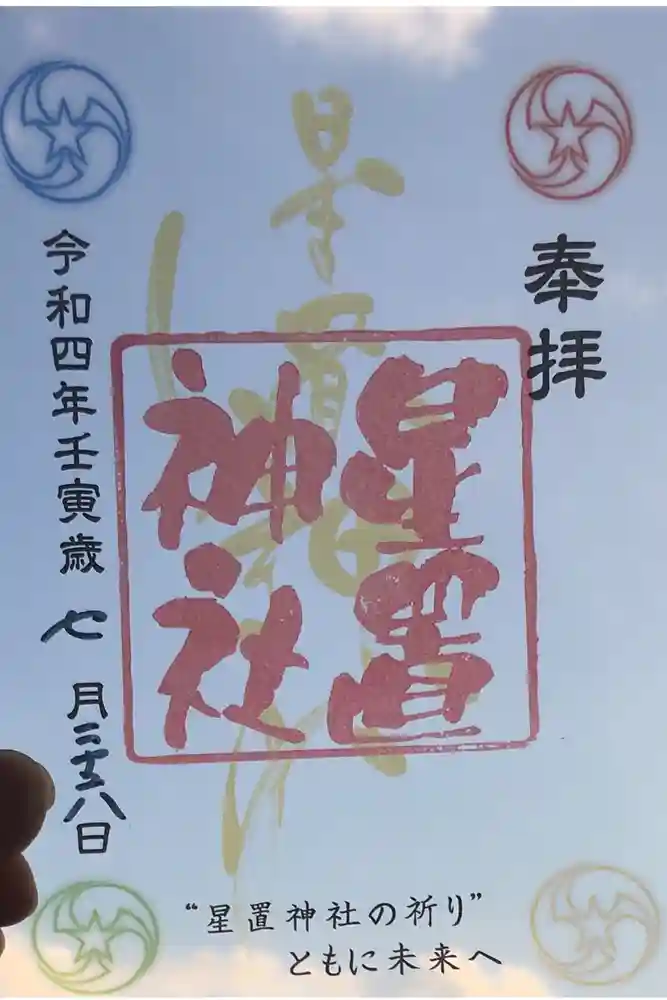 奉拝
星置
神社
令和四年壬寅歳 七月二十八日
“星置神社の祈り”
ともに未来へ